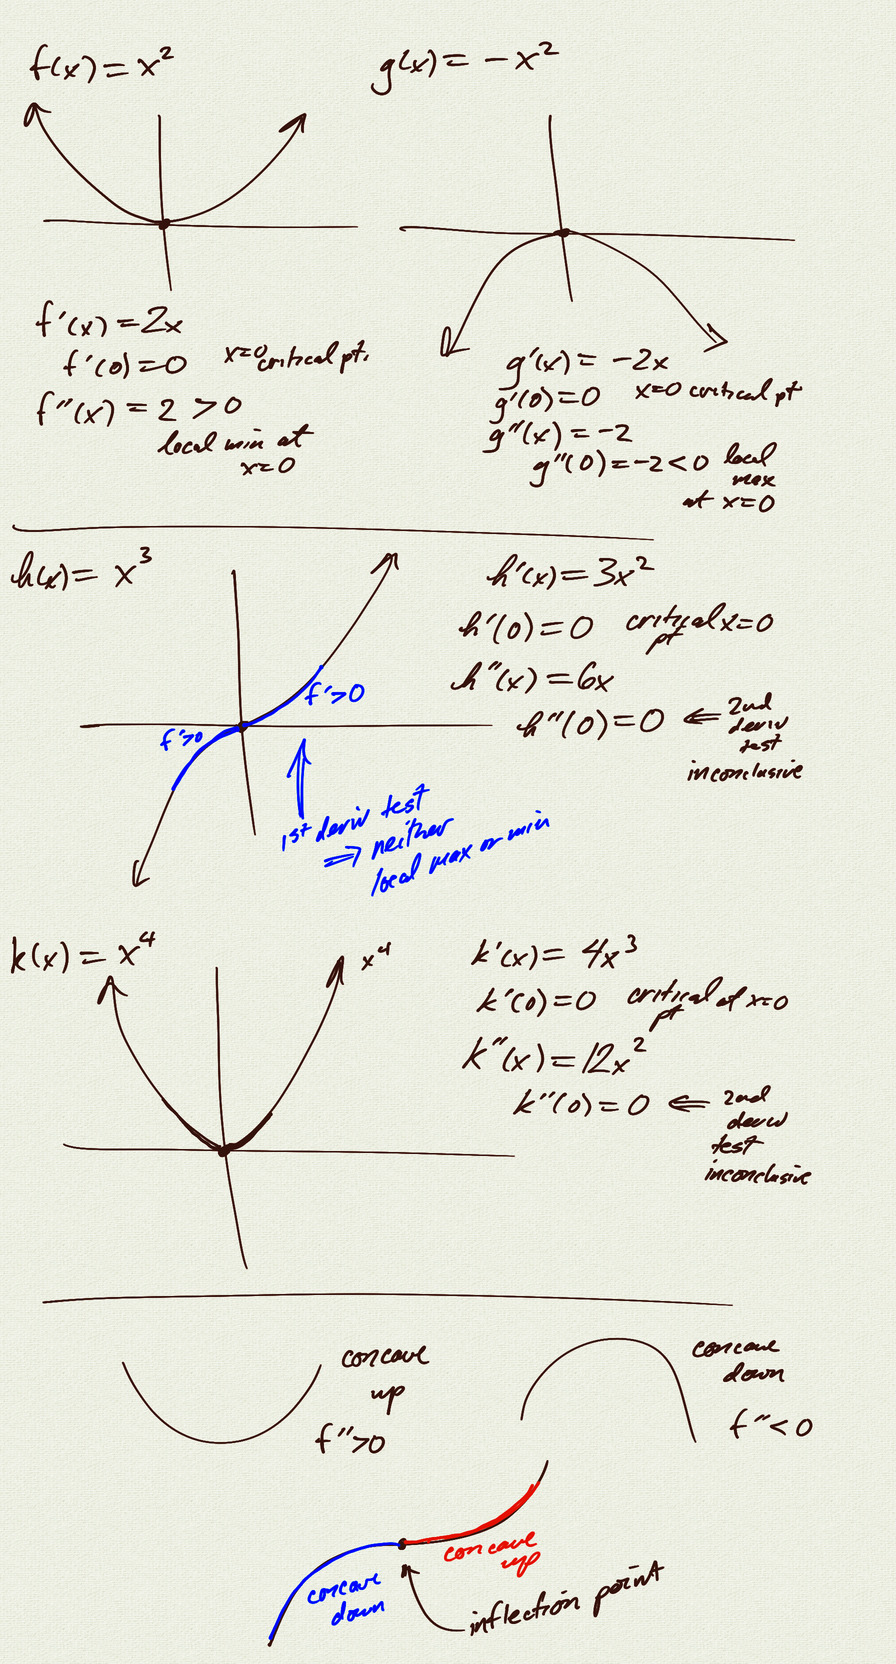 f(x) = x²
g(x) = -x²
f'(x) = 2x
f'(0) = 0 x=0 critical pt.
f''(x) = 2 > 0
local min at
x=0
g'(x) = -2x
g'(0) = 0 x=0 critical pt
g''(x) = -2
g''(0) = -2 < 0 local
max
at x=0
h(x) = x³
f'>0
f'>0
1st deriv test
⇒ neither
local max or min
h'(x) = 3x²
h'(0) = 0 critical x=0
pt
h''(x) = 6x
h''(0) = 0 ⇐ 2nd
deriv
test
inconclusive
k(x) = x⁴
x⁴
k'(x) = 4x³
k'(0) = 0 critical at x=0
pt
k''(x) = 12x²
k''(0) = 0 ⇐ 2nd
deriv
test
inconclusive
concave
up
f''>0
concave
down
f''<0
concave
down
concave
up
inflection point